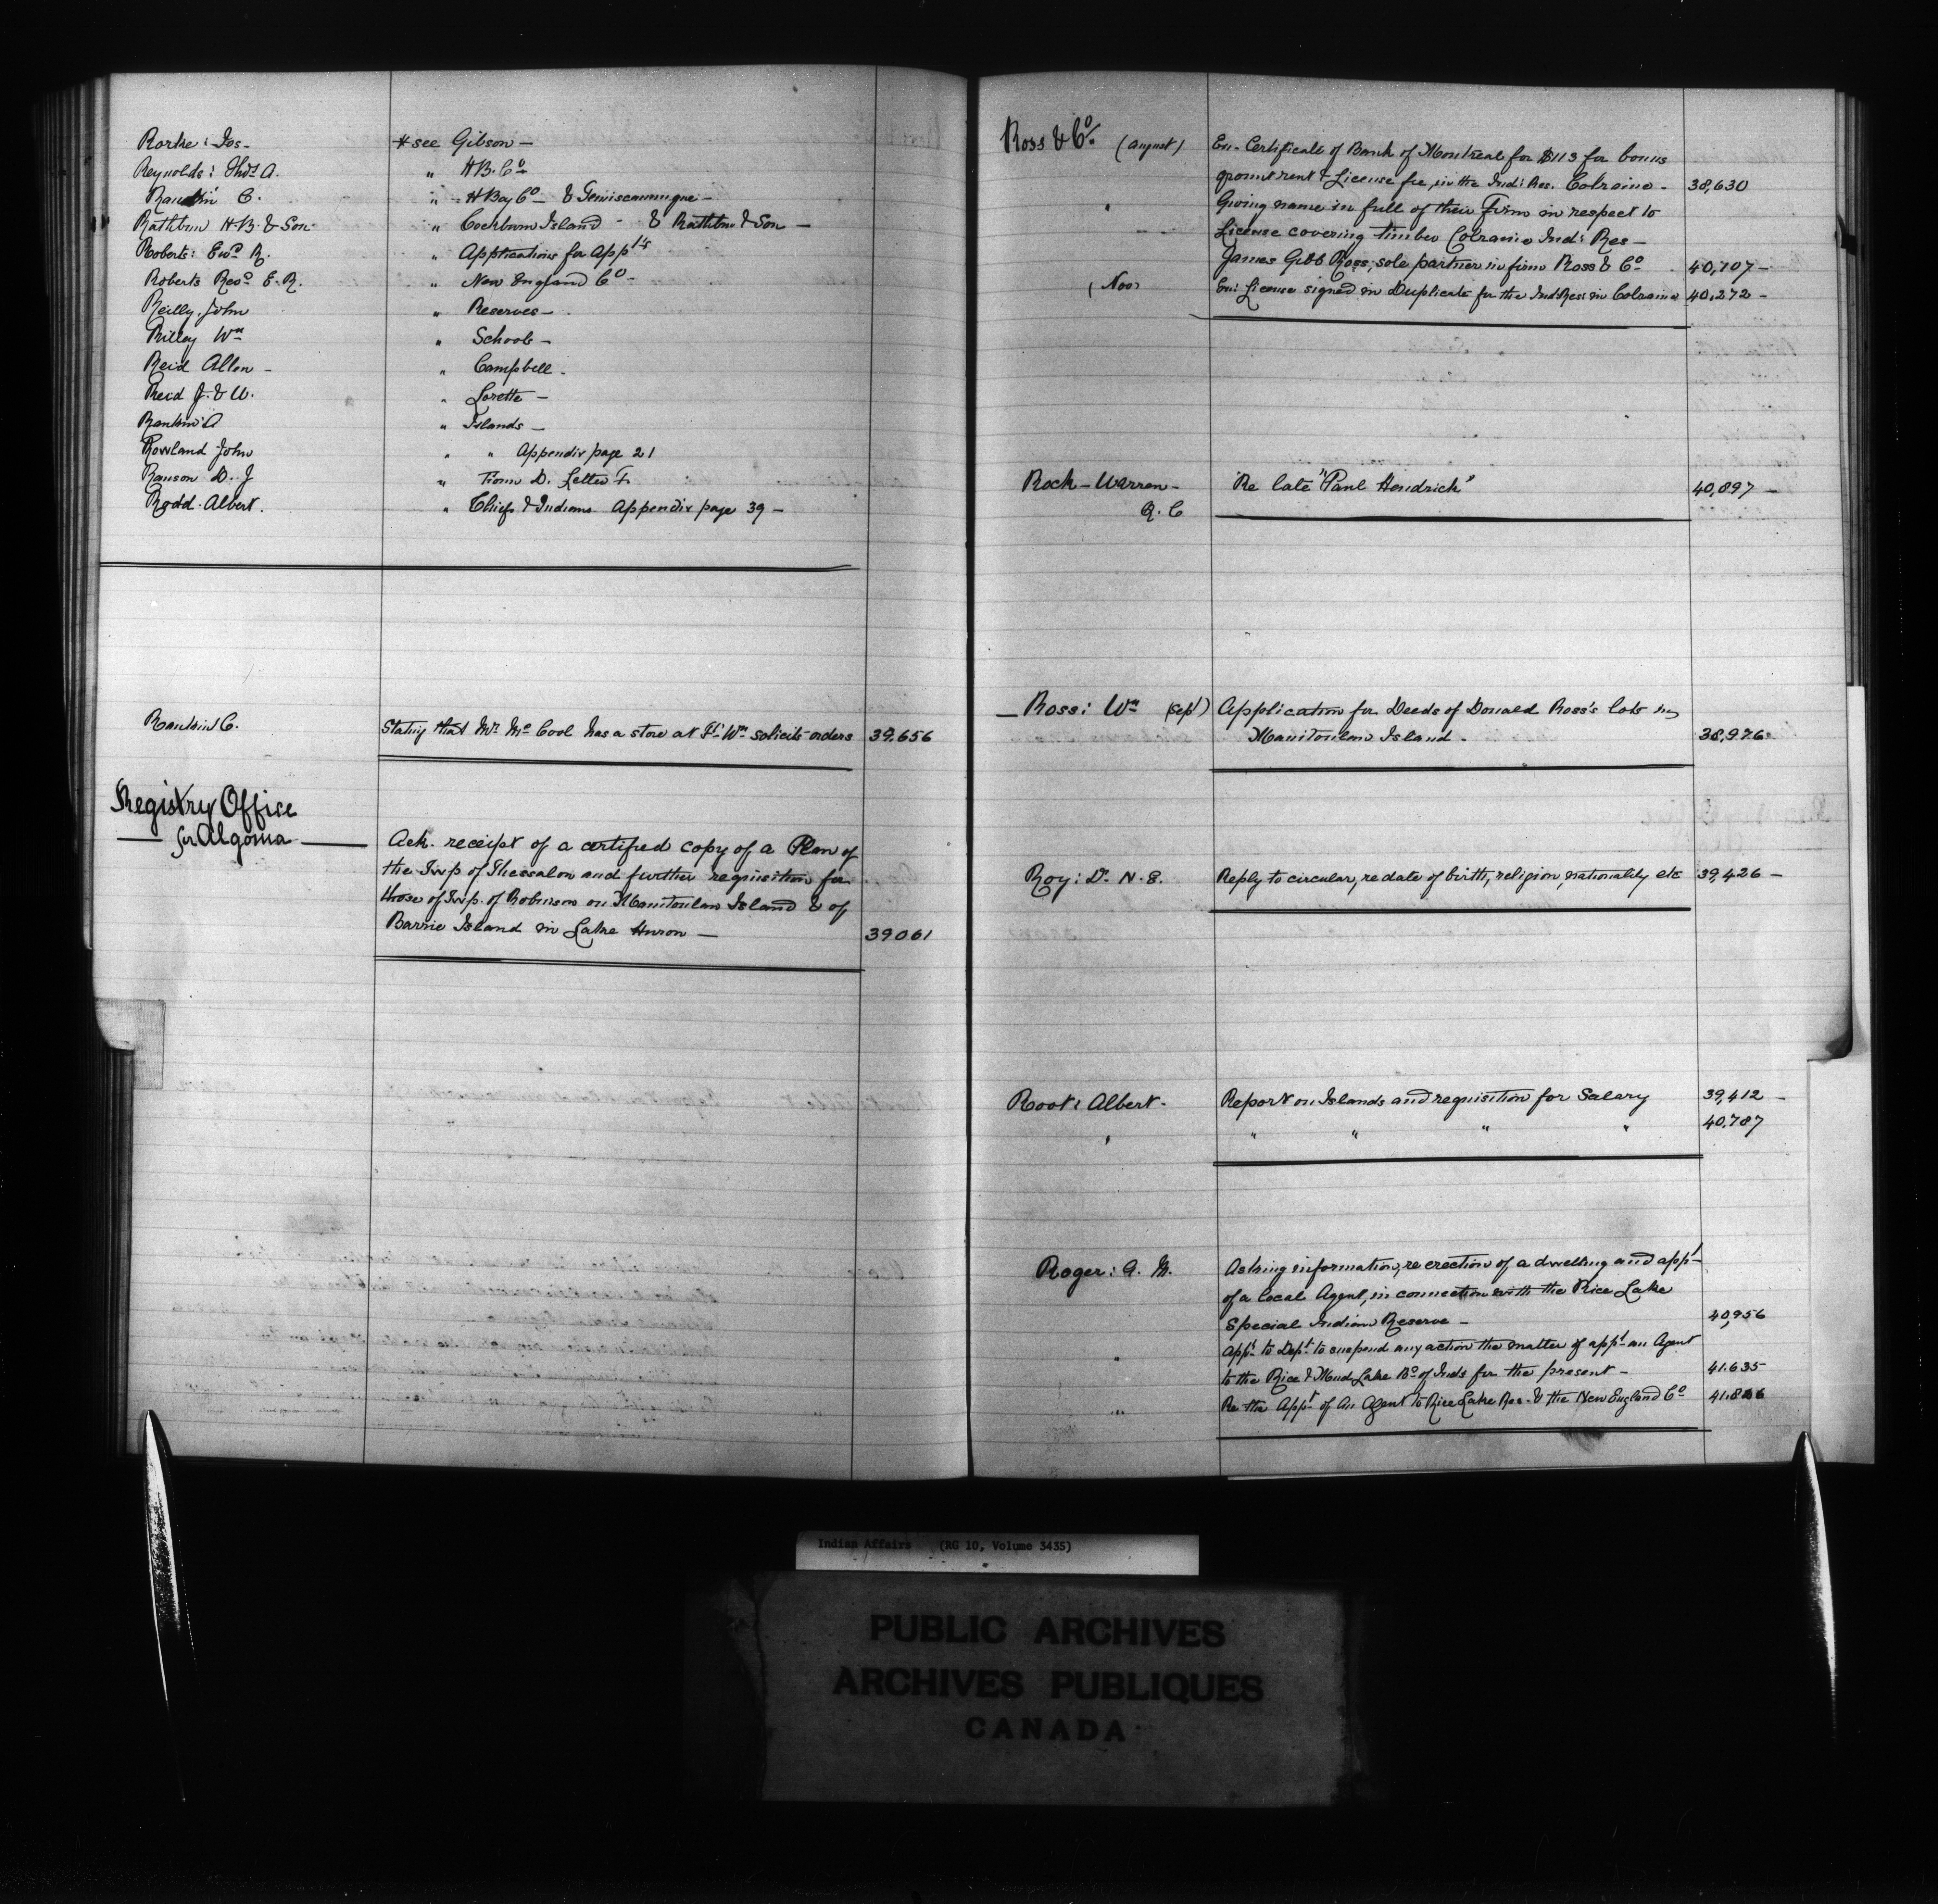 Rorke: Jos- # see Gibson -
Reynolds: Thos. A. " H.B. Co
Rankin C. " H Bay Co - & Temiscamingue -
Rathbun H.B. & Son " Cockburn Island - & Rathbun & Son -
Roberts: Ewd. R. " Applications for Appts
Roberts Revd. E. R. " New England Co -
Reilly John " Reserves -
Rilley Wm " Schools -
Reid Allen - " Campbell -
Reid J. & W. " Lorette -
Rankin A " Islands -
Rowland John " " Appendix page 21
Ranson D. J " D. Letter
Rodd Albert. " Chiefs & Indians Appendix page 39 -
Rankin C. Stating that Mr. McCool has a store at Ft. Wm. solicits orders 39,656
Registry Office
for Algoma
Ack. receipt of a certified copy of a Plan of
the Twp of Thessalon and further requisition for
those of Twp. of Robinson on Manitoulin Island & of
Barrie Island in Lake Huron - 39061
Ross & Co. (August) En. Certificate of Bank of Montreal for $113 for bonus
ground rent & License fee, in the Ind: Res. Colraine - 38,630
" Giving name in full of their Firm in respect to
License covering timber Colraine Ind: Res -
James Gibb Ross, sole partner in firm Ross & Co. 40,107 -
(Nov) En: License signed in Duplicate for the Ind Res in Colraine 40,272 -
Rock - Warren - Re late "Paul Hendrick" 40,897 -
Q. C
Ross: Wm (Sept) Application for Deeds of Donald Ross's lots in
Manitoulin Island. 38,976
Roy: Dr. N. E. Reply to circular, re date of birth, religion, nationality etc 39,426 -
Root: Albert. Report on Islands and requisition for Salary 39,412 -
" " " " " 40,787
Roger: G. M. Asking information, re erection of a dwelling and appt
of a local Agent, in connection with the Rice Lake
Special Indian Reserve - 40,956
" Appn. to Dept. to suspend any action the matter of appt. an Agent
to the Rice & Mud Lake Bd of Inds for the present - 41.635
" Re the Appt. of An Agent to Rice Lake Res. & the New England Co
Indian Affairs (RG 10, Volume 3435)
PUBLIC ARCHIVES
ARCHIVES PUBLIQUES
CANADA